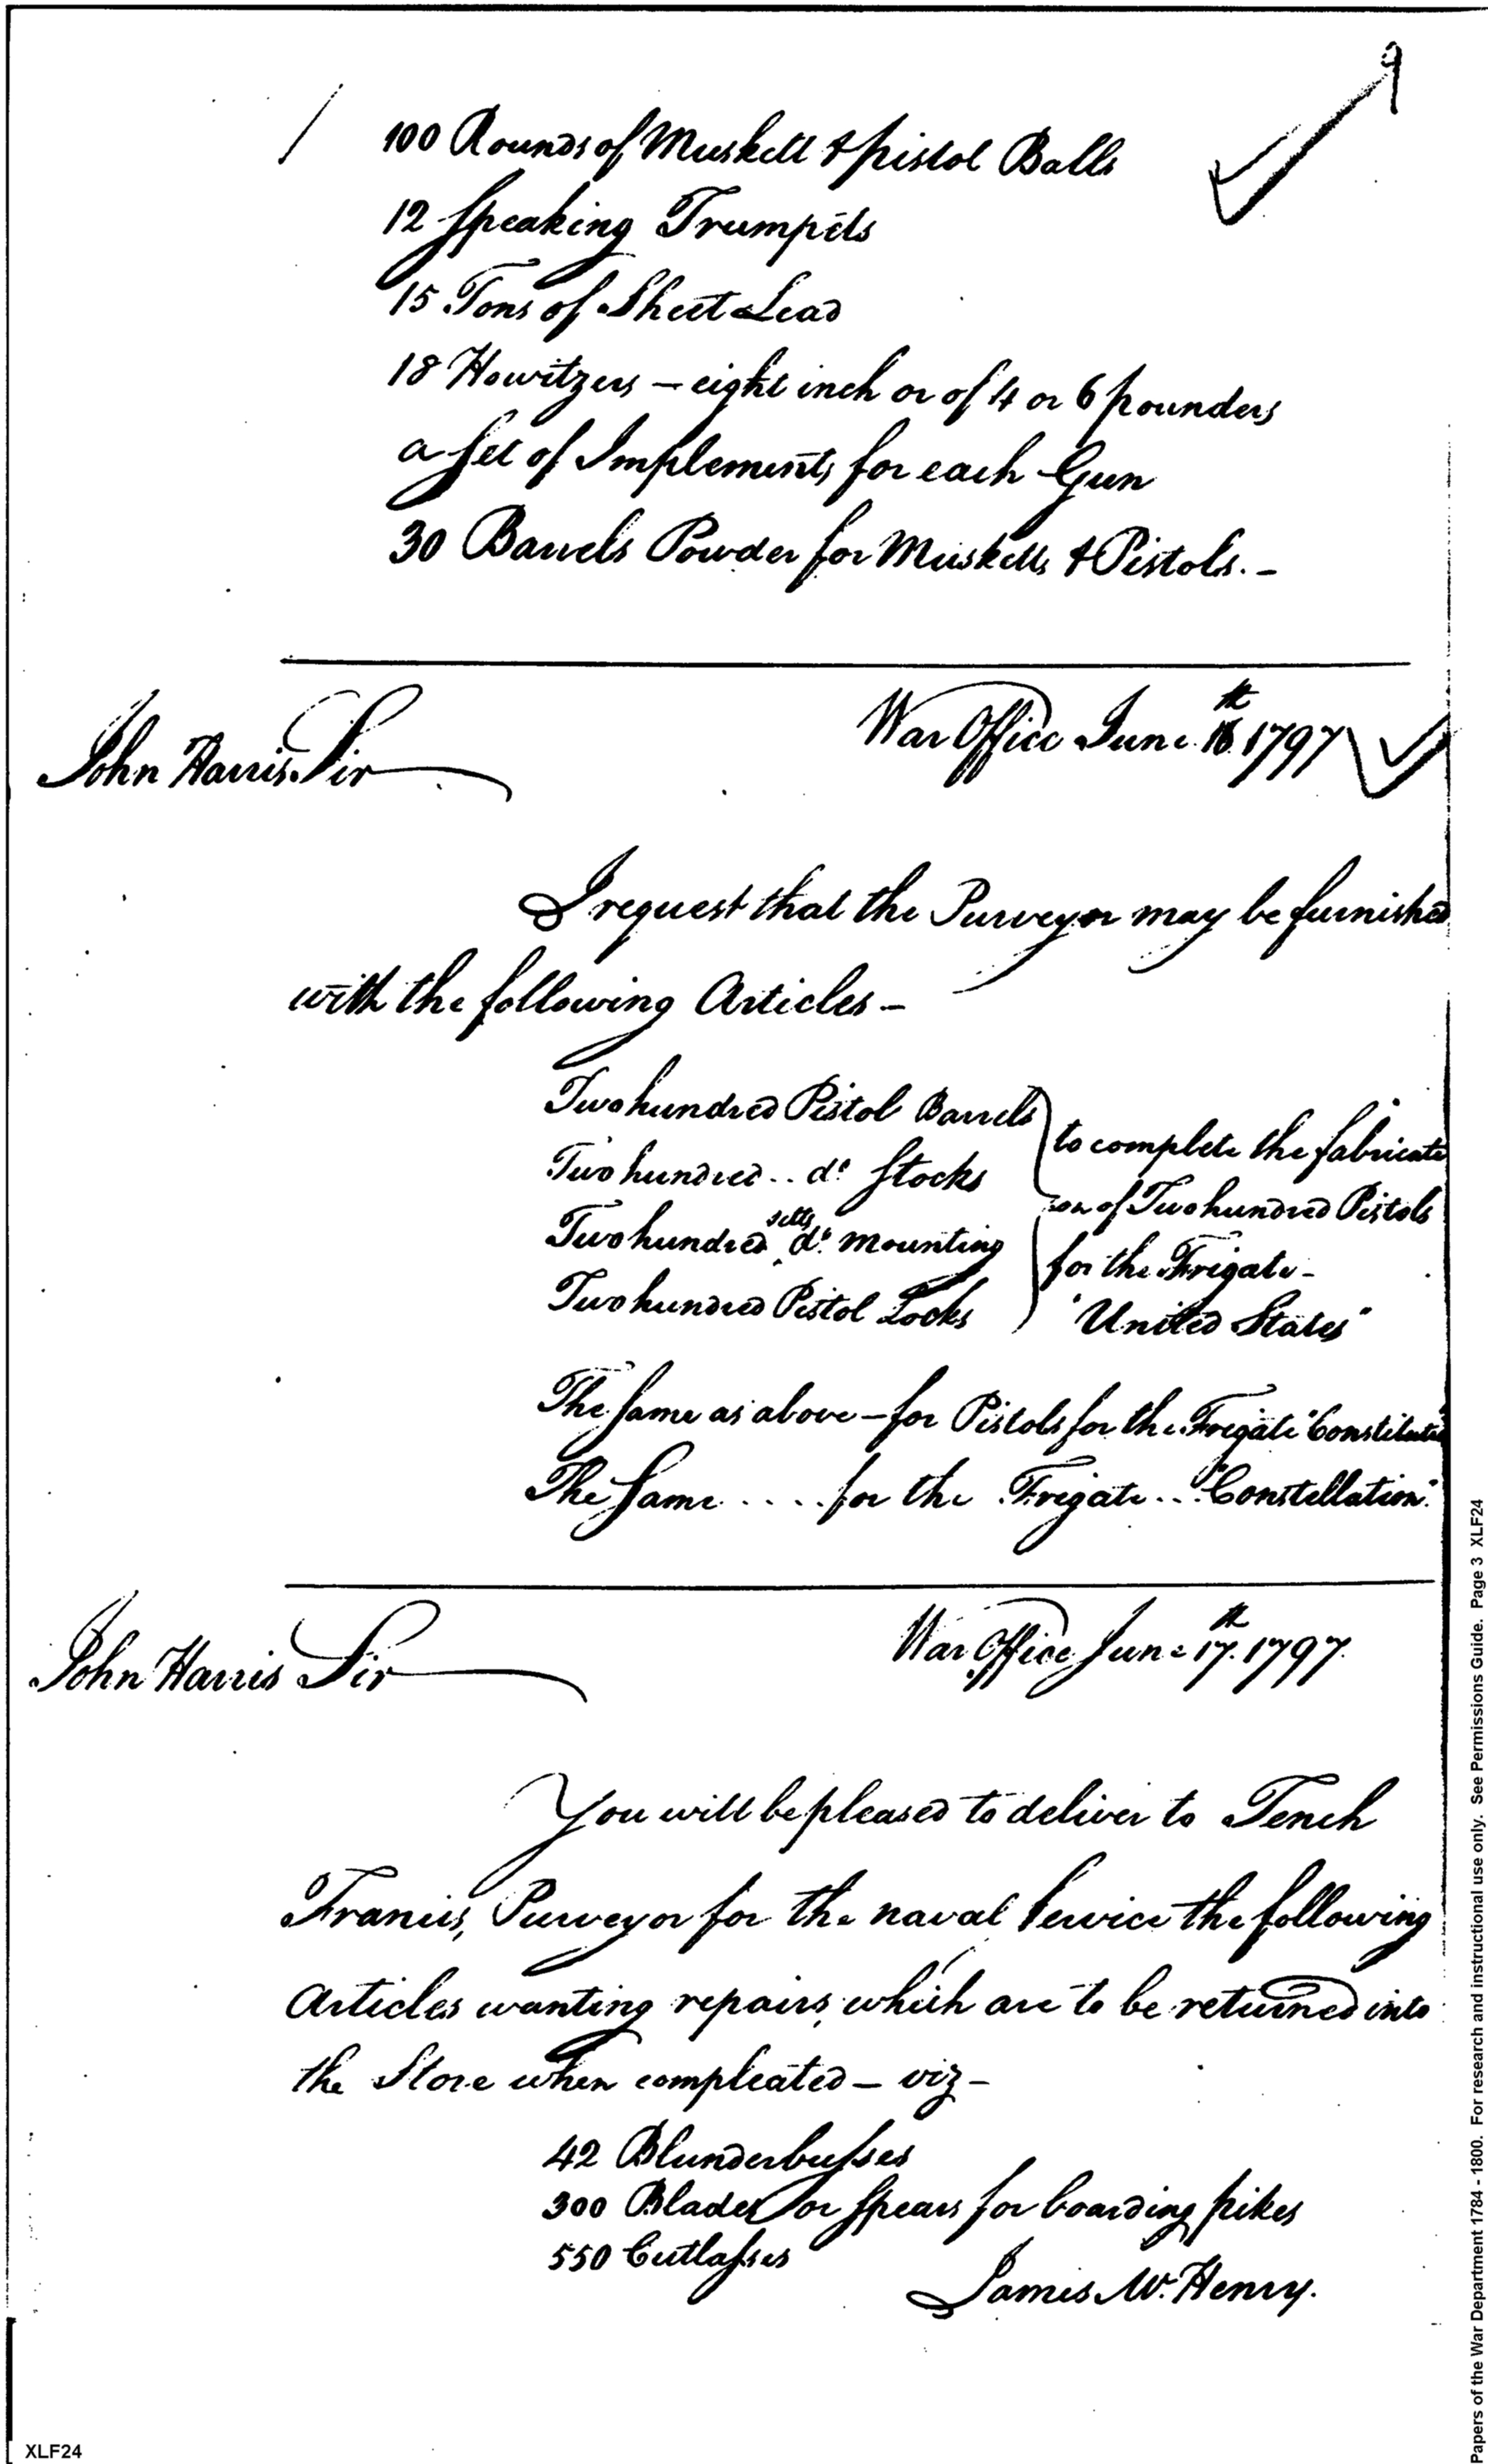 9
100 Rounds of Muskett & pistol Balls
12 Speaking Trumpets
15 Tons of Sheet Lead
18 Howitzers – eight inch or of 4 or 6 pounders
a set of Implements for each Gun
30 Barrels Powder for Musketts & Pistols. –
War Office June 16th 1797
John Harris Sir
I request that the Purveyor may be furnished
with the following Articles –
Two hundred Pistol Barrels
Two hundred .. do Stocks
Two hundred setts do. mounting
Two hundred Pistol Locks
to complete the fabricati
ion of Two hundred Pistols
for the Frigate –
"United States"
The same as above – for Pistols for the Frigate "Constitution
The same .... for the Frigate .. "Constellation".
War Office June 17th. 1797.
John Harris Sir
You will be pleased to deliver to Tench
Francis, Purveyor for the naval Service the following
Articles wanting repairs, which are to be returned into
the Store when compleated – viz –
42 Blunderbusses
300 Blades or spears for boarding pikes
550 Cutlasses
James McHenry.
XLF24
Papers of the War Department 1784 - 1800. For research and instructional use only. See Permissions Guide. Page 3 XLF24